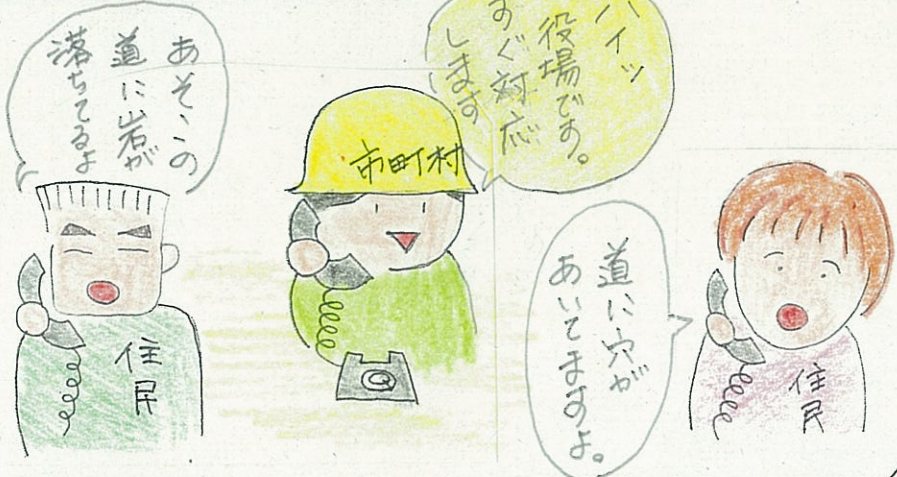 あそこの
道に岩が
落ちてるよ
住民
市町村
ハイッ
役場です。
すぐ対応
します
道に穴が
あいてますよ。
住民